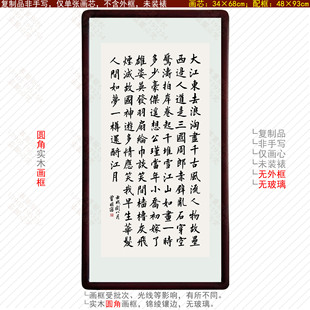 复制品非手写，仅单张画芯，不含外框，未装裱
画芯：34×68cm；配框：48×93cm
大江東去浪淘盡千古風流人物故壘
西邊人道是三國周郎赤壁亂石穿空
驚濤拍岸卷起千堆雪江山如畫一時
多少豪傑遥想公瑾當年小喬初嫁了
雄姿英發羽扇綸巾談笑間檣櫓灰飛
煙滅故國神遊多情應笑我早生華髮
人間如夢一樽還酹江月
圆角
实木
画框
复制品
非手写
仅画心
未装裱
无外框
无玻璃
画框受批次、光线等影响，有所不同。
实木圆角画框，锦绫镶边，无玻璃。